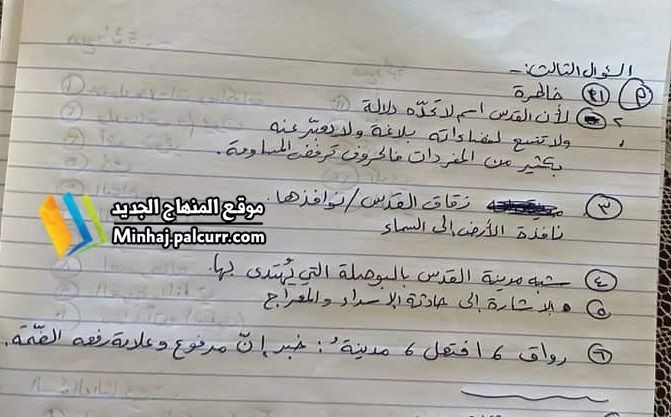 السؤال الثالث:-
م) ١) خاطرة
٢. لأن القدس اسم لا تحدّه دلالة
ولا تتسع لفضاءاته بلاغة ولا يعبّر عنه
بكثير من المفردات فالحروف ترفض المساومة.
٣) زقاق القدس / نوافذها.
نافذة الأرض إلى السماء
٤) شبه مدينة القدس بالبوصلة التي يُهتدى بها.
٥) الإشارة إلى حادثة الإسراء والمعراج
٦) رواق 6 افتعل 6 مدينةٌ : خبر إنّ مرفوع وعلامة رفعه الضّمة.
موقع المنهاج الجديد
Minhaj.palcurr.com